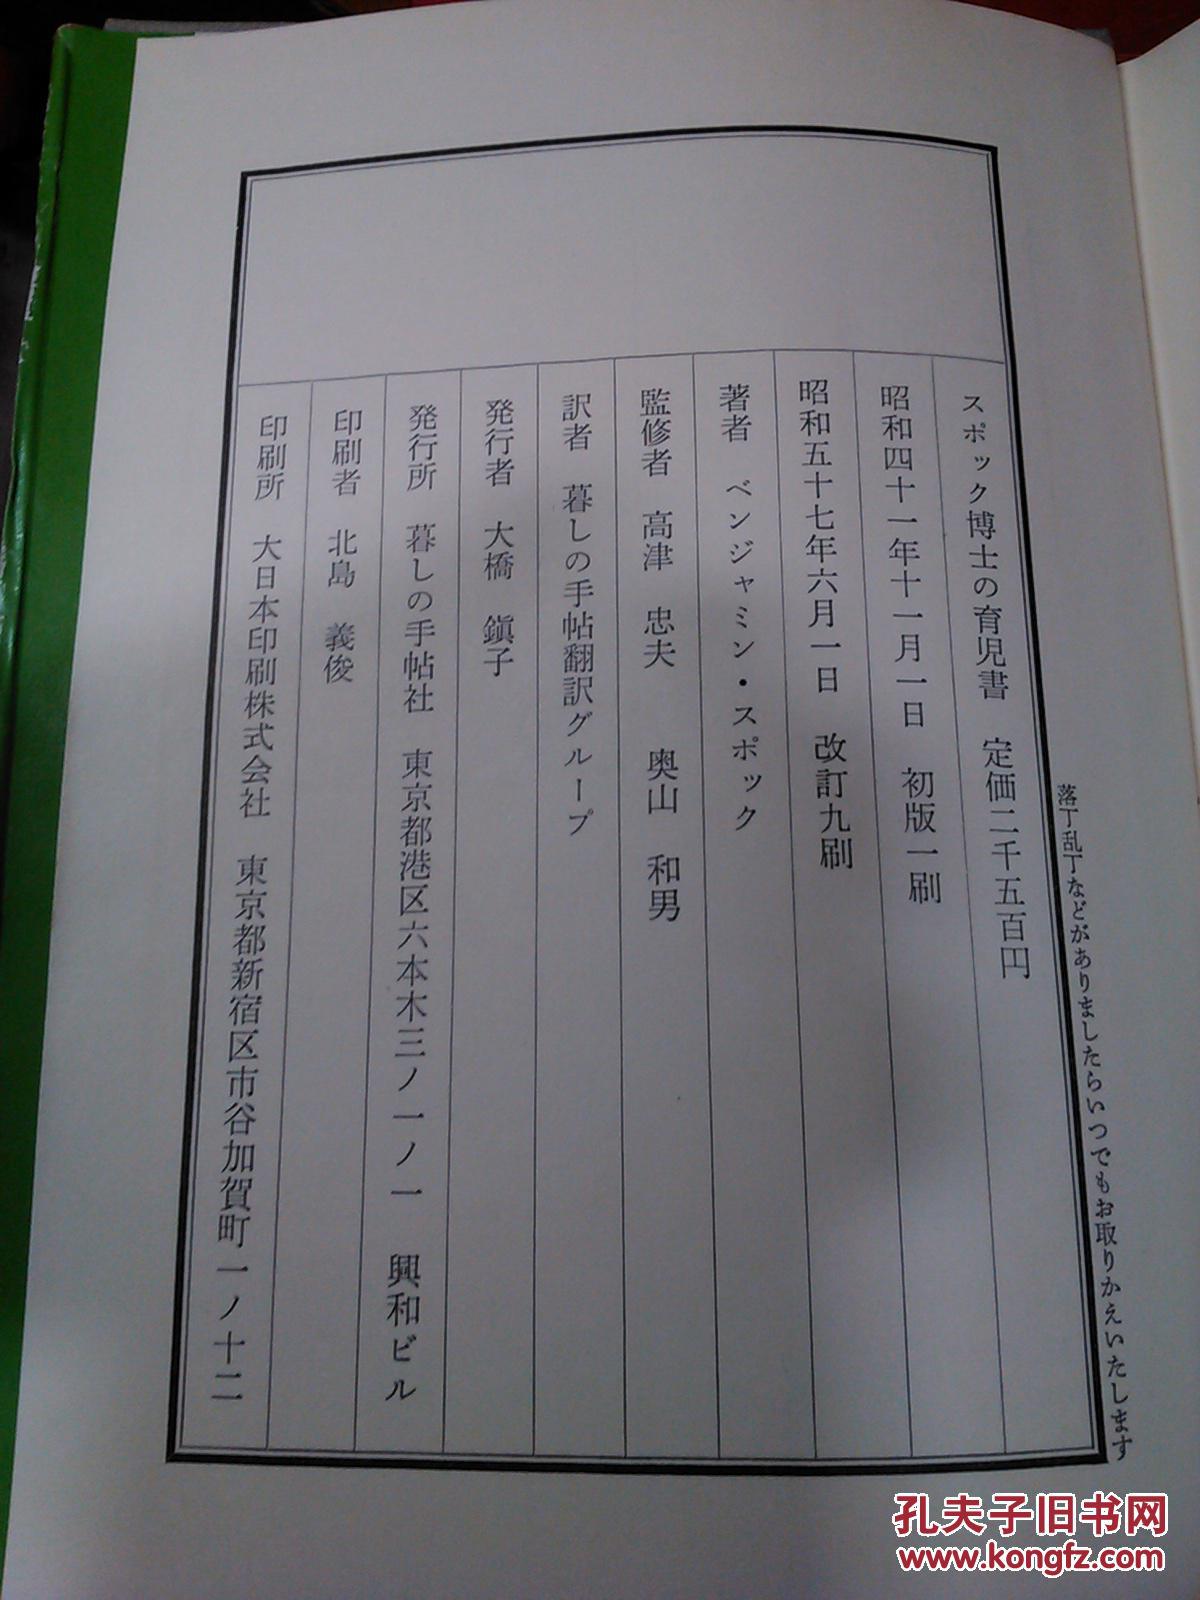 落丁乱丁などがありましたらいつでもお取りかえいたします
スポック博士の育児書　定価二千五百円
昭和四十一年十一月一日　初版一刷
昭和五十七年六月一日　改訂九刷
著者　ベンジャミン・スポック
監修者　高津　忠夫　奥山　和男
訳者　暮しの手帖翻訳グループ
発行者　大橋　鎭子
発行所　暮しの手帖社　東京都港区六本木三ノ一ノ一　興和ビル
印刷者　北島　義俊
印刷所　大日本印刷株式会社　東京都新宿区市谷加賀町一ノ十二
孔夫子旧书网
www.kongfz.com